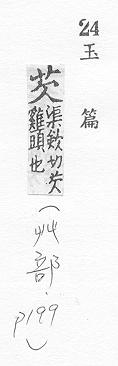 24
玉篇
芡渠歛切芡
雞頭也
（艸部．p199）